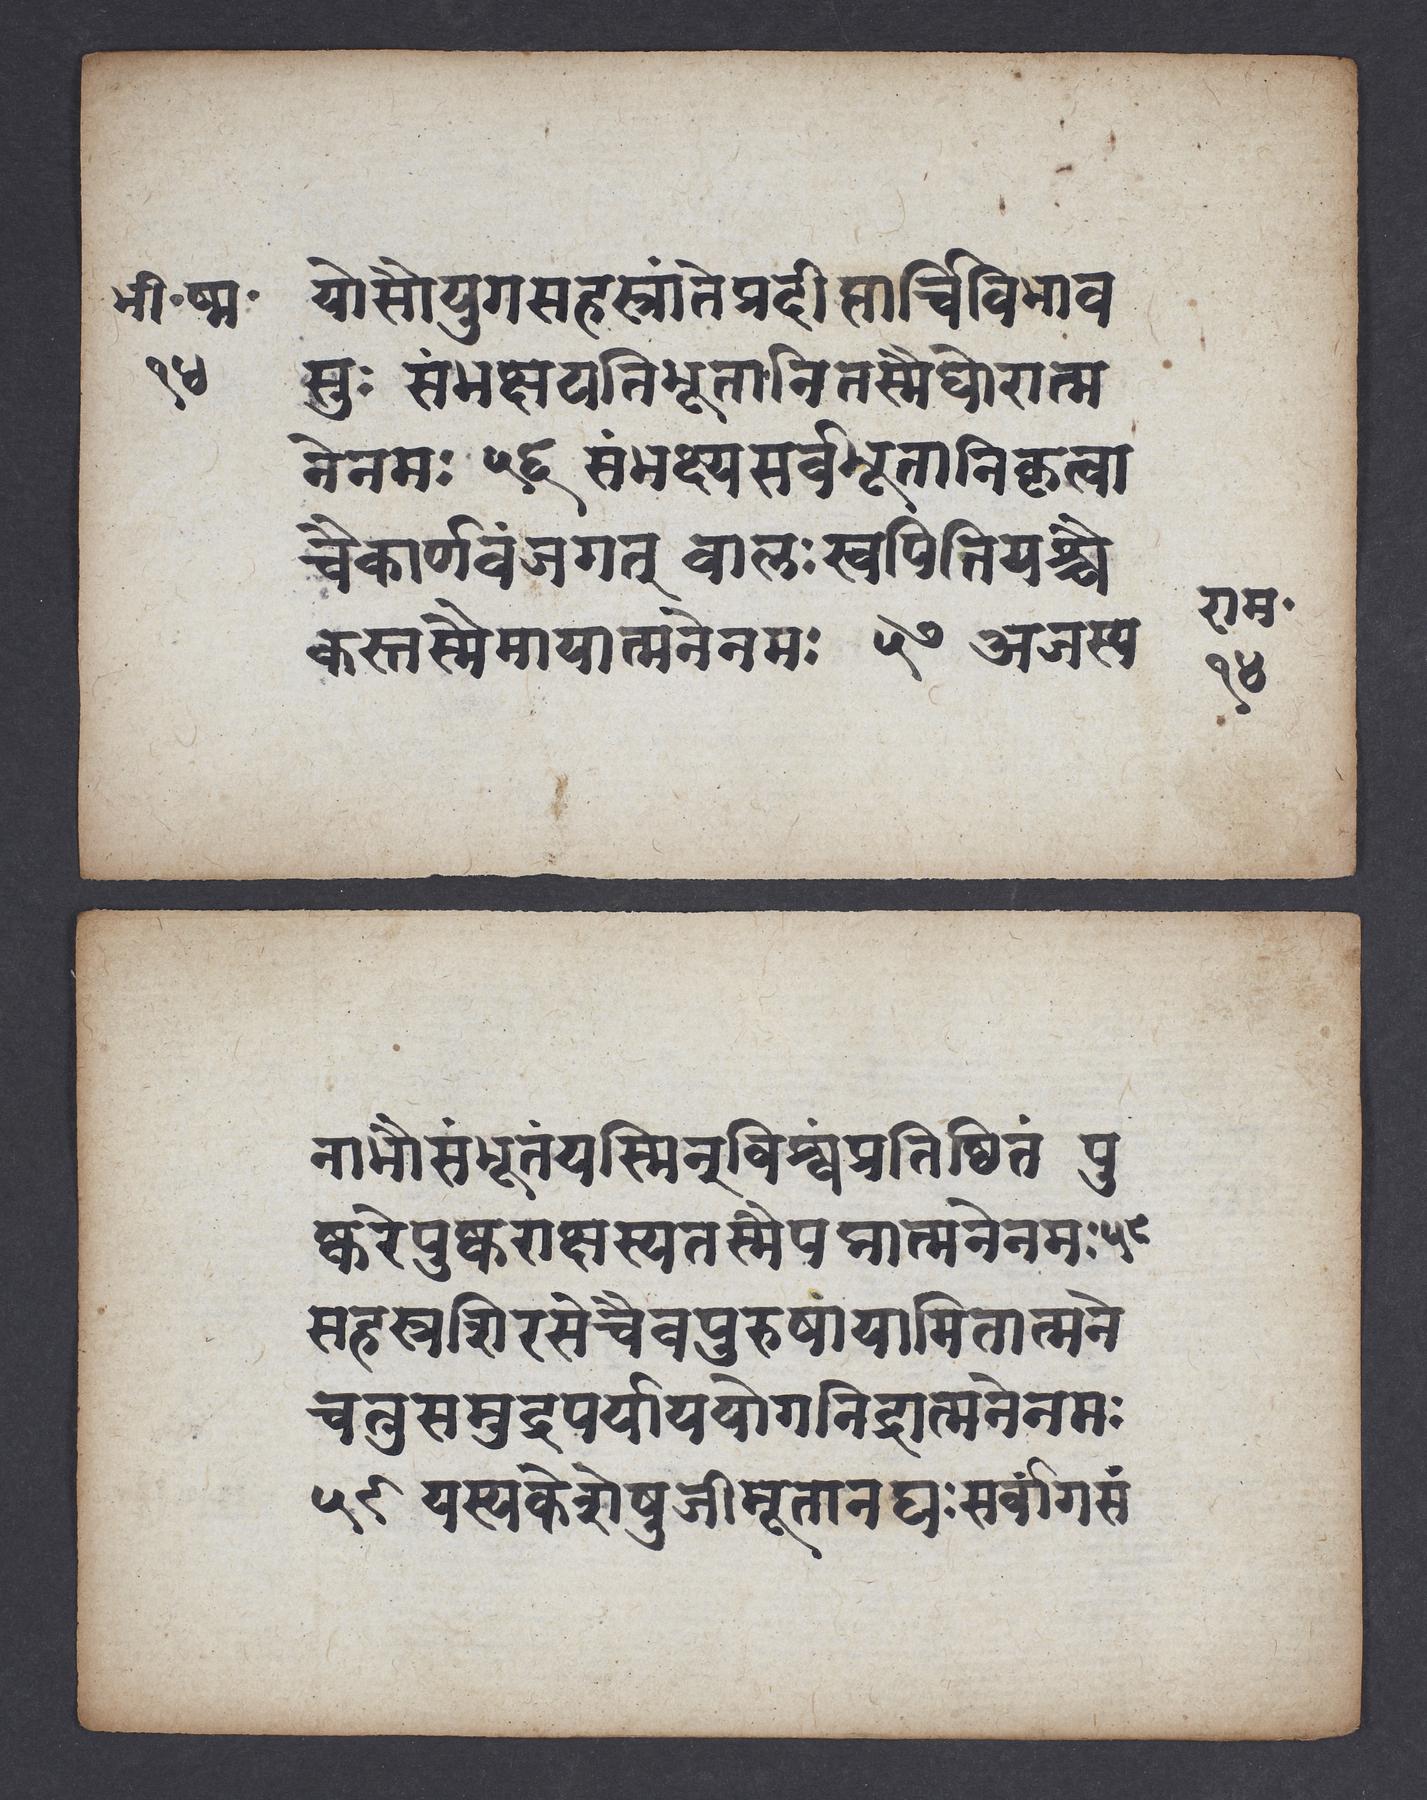 भी॰ष्म॰
१४
योसौयुगसहस्त्रांतेप्रदीप्तार्चिविभाव
सुः संभक्षयतिभूतानितस्मैघोरात्म
नेनमः ५६ संभक्ष्यसर्वभूतानिकृत्वा
चैकार्णवंजगत् बालःस्वपितियश्चै
कस्तस्मैमायात्मनेनमः ५७ अजस्य
राम॰
१४
नाभौसंभूतंयस्मिन्विश्वंप्रतिष्ठितं पु
ष्करेपुष्कराक्षस्यतस्मैपद्मात्मनेनमः५८
सहस्त्रशिरसेचैवपुरुषायामितात्मने
चतुसमुद्रपर्याययोगनिद्रात्मनेनमः
५९ यस्यकेशेषुजीमूतानद्यःसर्वांगसं